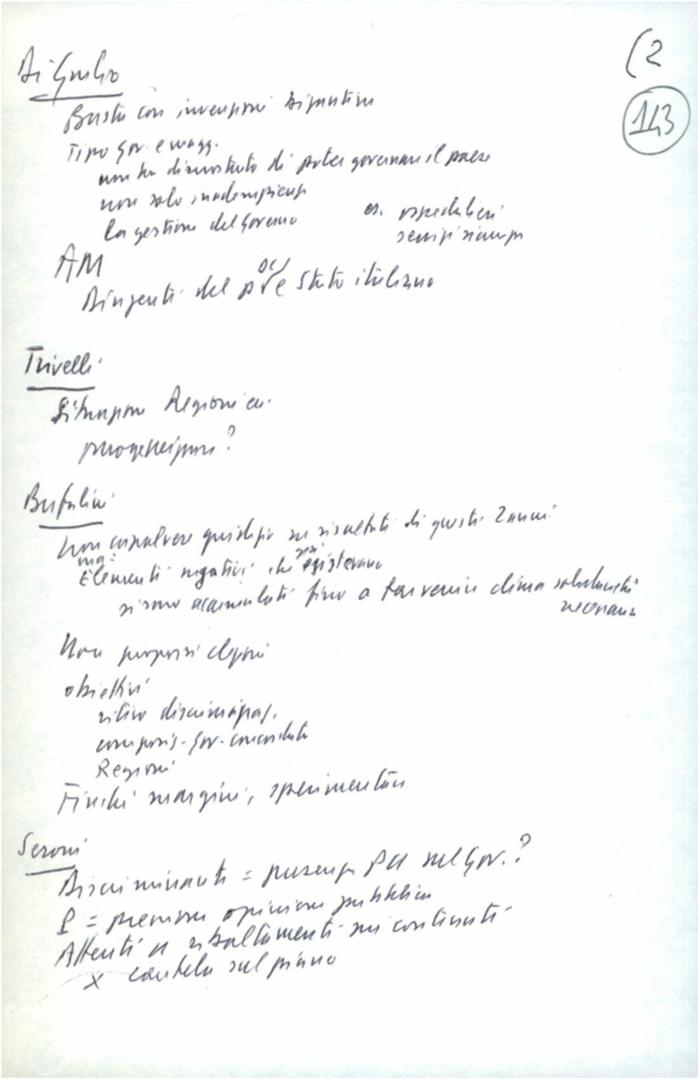 (2
143
Di Giulio
Basta con invenzioni bizantine
Tipo Gov. e magg.
non ha dimostrato di poter governare il paese
non solo inadempienze
la gestione del Governo es. ospedalieri
servizi
AM
Dirigenti del dello Stato italiano
Trivelli
Situazione Regioni ecc.
Bufalini
Non assolvere giudizio su risultati di questi 2 anni
ma:
Elementi negativi che esistevano
si sono accumulati fino a far venir clima
Non proporsi elezioni
obiettivi
ritiro discriminaz.
composiz. Gov. concordata
Regioni
Finché margini, sperimentare
Seroni
Discriminanti = presenza PCI nel Gov.?
E = pressione opinione pubblica
Attenti a ribaltamenti sui contenuti
x cautela sul piano